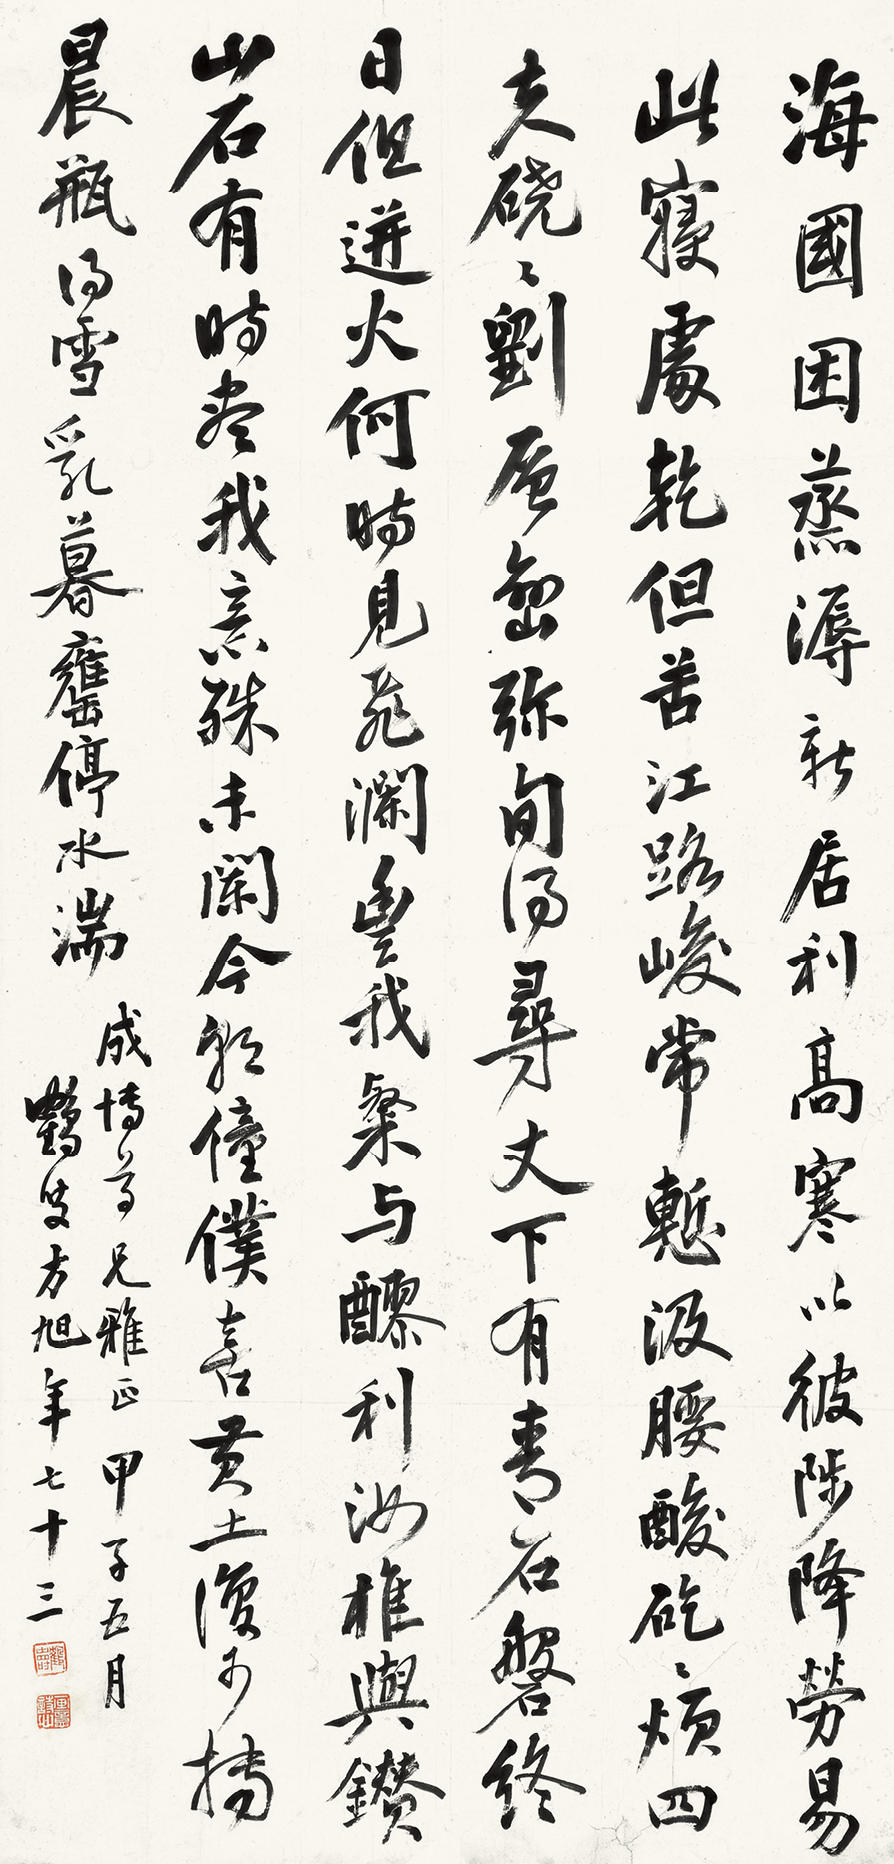 海國困蒸溽新居利高寒以彼陟降勞易
此寢處乾但苦江路峻常慙汲腰酸矻〻煩四
夫磽〻劚層巒弥旬得尋丈下有青石磐終
日但迸火何時見飛瀾豐我粲与醪利汝椎與鑽
山石有時盡我意殊未闌今朝僮僕喜黃土復可摶
晨瓶得雪乳暮罋停冰湍
成博尊兄雅正 甲子五月
鶴叟方旭年七十三